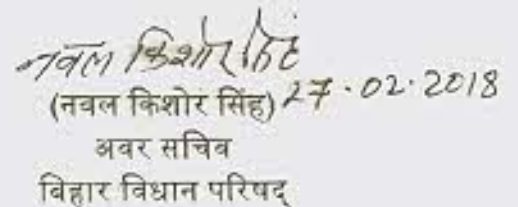 नवल किशोर सिंह
(नवल किशोर सिंह) 27.02.2018
अवर सचिव
बिहार विधान परिषद्